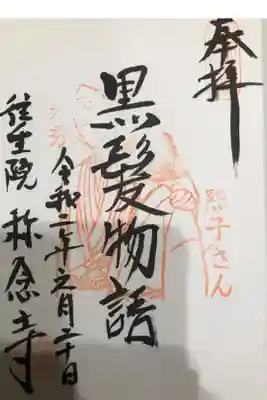 奉拝
熙子さん
黒髪物語
令和二年六月二十日
往生院 称念寺